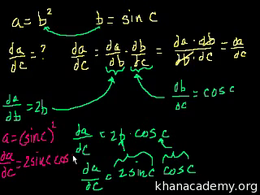 a = b² b = sin c
da/dc = ? da/dc = da/db · db/dc = da·db/db·dc = da/dc
da/db = 2b db/dc = cos c
a = (sin c)² da/dc = 2b · cos c
da/dc = 2 sin c cos
da/dc = 2 sin c cos c
khanacademy.org